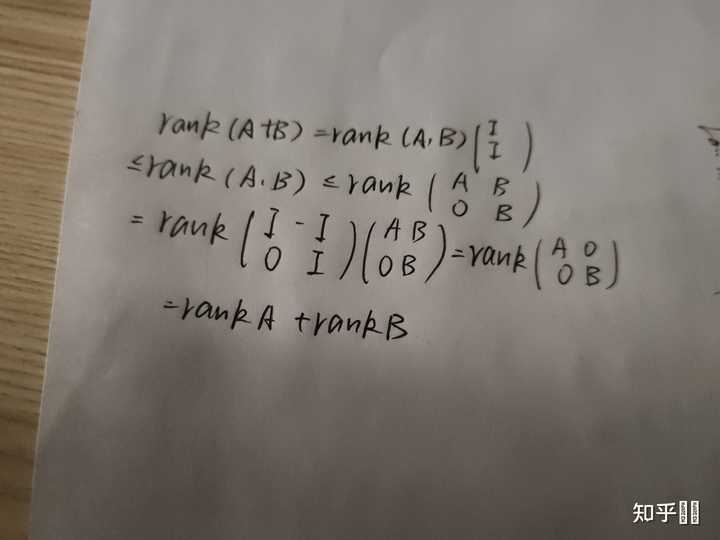 rank(A+B) = rank(A,B)(I I)
≤rank(A,B) ≤ rank(A B O B)
= rank(I -I O I)(A B O B) = rank(A O O B)
= rank A + rank B
知乎